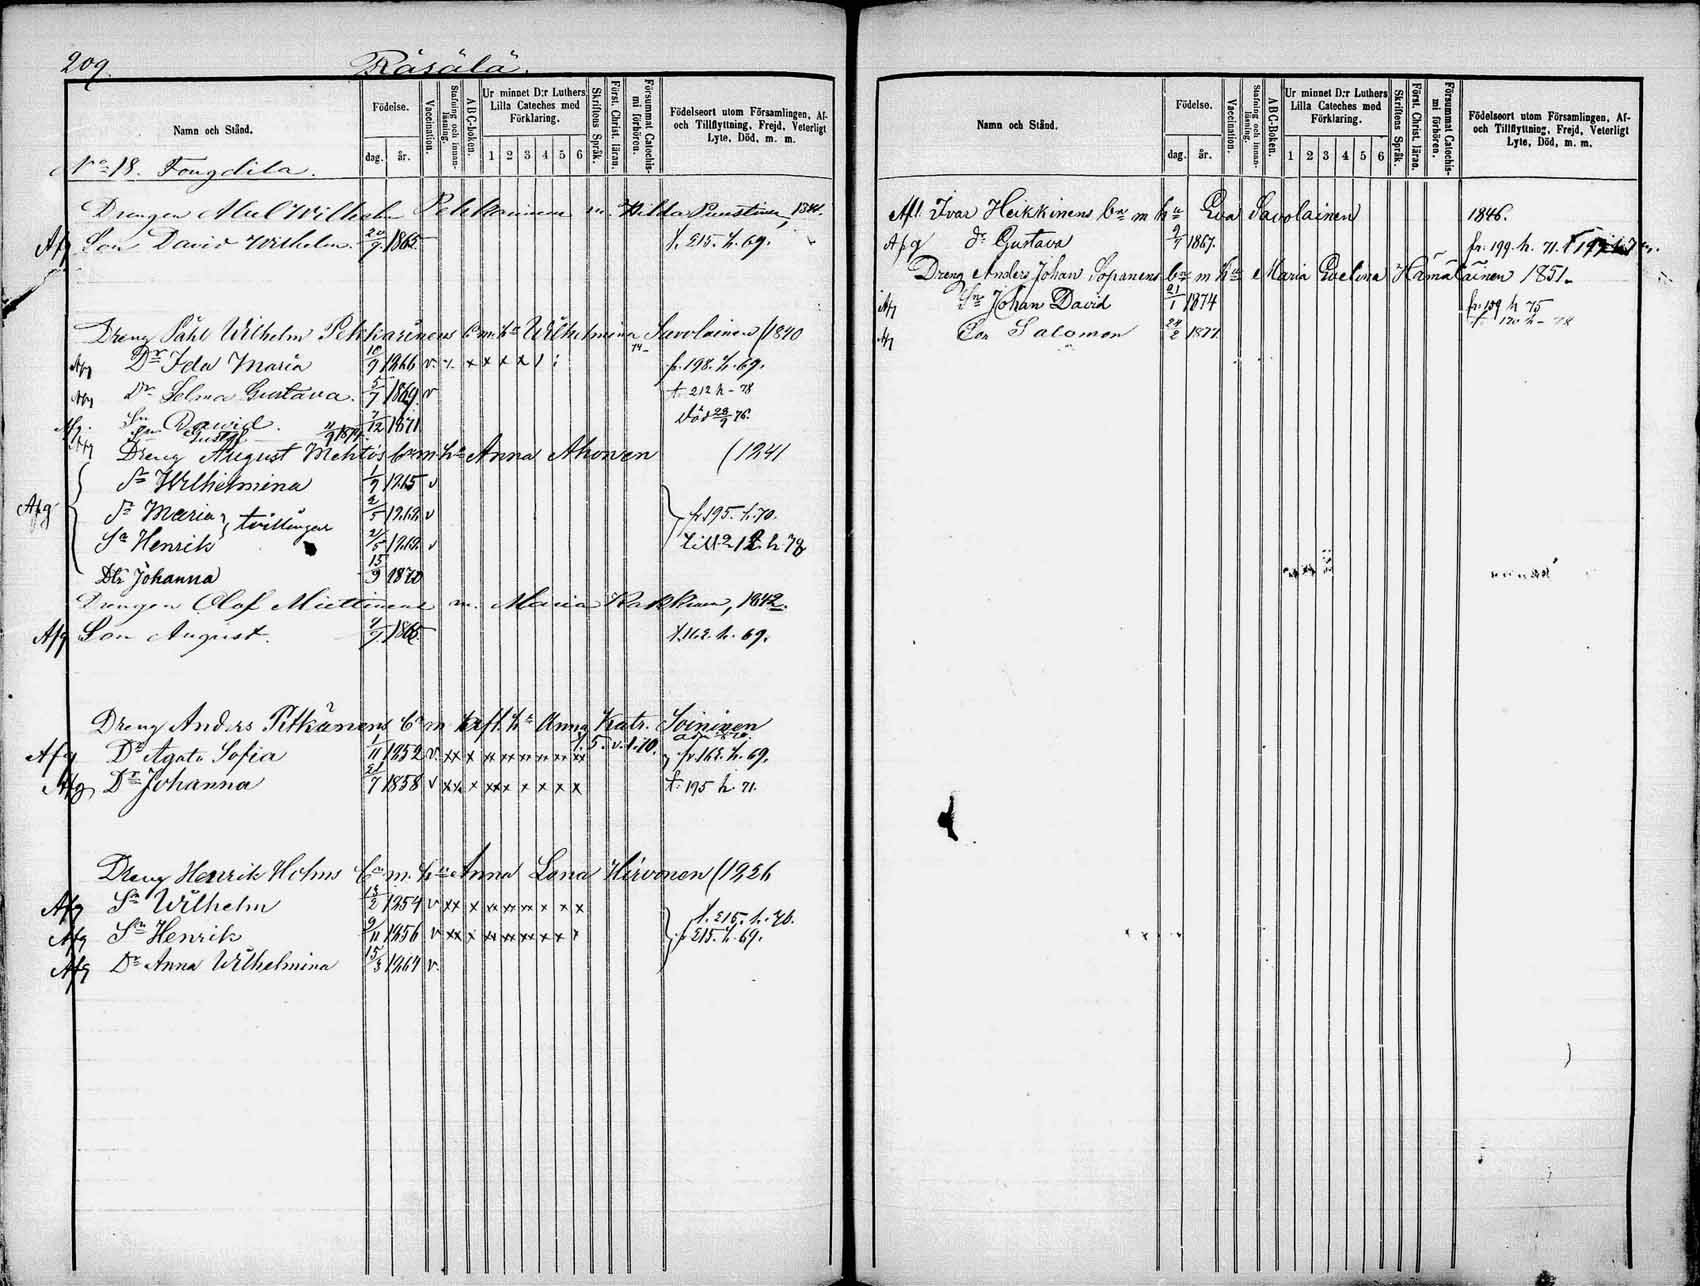 209.
Räsälä.
Namn och Stånd.
Födelse.
dag.
år.
Vaccination.
Stafning och innanläsning.
A B C-Boken.
Ur minnet D:r Luthers Lilla Cateches med Förklaring.
1 2 3 4 5 6
Skriftens Språk.
Först. Christ. läran.
Försummat Catechismi förhören.
Födelseort utom Församlingen, Af- och Tillflyttning, Frejd, Veterligt Lyte, Död, m. m.
No 18. Fougdila.
Drengen Abel Wilhelm Pehkoinen m. Hilda Puustinen, 1341.
Afg Son David Wilhelm. 20/9 1865 f. 215. h. 69.
Dreng Påhl Wilhelm Pekkarinens bn m. ha Wilhelmina Savolainen (1840
Afg Dr Ida Maria 10/9 1866 v. fr. 198. h. 69.
Afg Dr Selma Gustava. 5/7 1869. v t. 212 h - 78
Afg. Sn David 7/12 1871 död 28/9 76.
Afg Sn Gustaf 11/9 1874.
Dreng August Mehtos bn m. ha Anna Ahonen (1841
Afg
Dr Wilhelmina 1/9 1865 v
Dr Maria 2/5 1868. v fr. 195. h. 70.
tvillingar
Sn Henrik 2/5 1868. v till 212. h. 78
Dtr Johanna 15/9 1870
Drengen Olof Miettinens m. Maria Kakkinen, 1842.
Afg Son August. 1865 f. 162. h. 69.
Dreng Anders Pitkänens bn m. frfl. ha Anna Katr. Soininen
Afg Dr Agata Sofia 1/11 1852 v. xx x xx xx xx xx xx xx fr. 162. h. 69.
Afg Dr Johanna 21/7 1858 v xx x xx x x x x x t. 195 h. 71.
Dreng Henrik Holms bn m. ha Anna Lena Hirvonen (1826
Afg Sn Wilhelm 13/2 1854 v xx x x xx xx x x x f. 215. h. 70.
Afg Sn Henrik 9/11 1856 v xx x xx xx x x x fr 215. h. 69.
Afg Dr Anna Wilhelmina 15/3 1864 v.
Namn och Stånd.
Födelse.
dag.
år.
Vaccination.
Stafning och innanläsning.
A B C-Boken.
Ur minnet D:r Luthers Lilla Cateches med Förklaring.
1 2 3 4 5 6
Skriftens Språk.
Först. Christ. läran.
Försummat Catechismi förhören.
Födelseort utom Församlingen, Af- och Tillflyttning, Frejd, Veterligt Lyte, Död, m. m.
Afl. Ivar Heikkinens bn m ha Eva Savolainen 1846.
Afg dr Gustava 1867. fr. 199. h. 71.
Dreng Anders Johan Sopanens bn m ha Maria Evelina Hämäläinen 1851.
Afg Sn Johan David 21/1 1874 fr. 159 h 75
Afg Son Salomon 24/2 1877. t. 170 h - 78